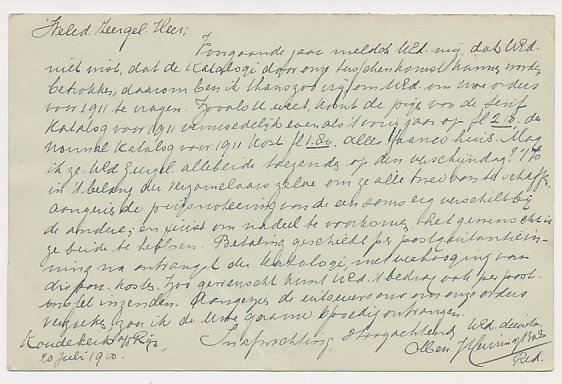 WelEd. Zeergel. Heer;
Voorgaande jaar meldde UEd. mij, dat UEd.
niet wist, dat de Katalogi door onze tusschenkomst kunnen worden
betrokken, daarom ben ik thans zoo vrij, om UEd om uwe orders
voor 1911 te vragen. Zooals U weet, komt de prijs van de Senf
Katalog voor 1911 vermoedelijk evenals 't vorig jaar op fl 2.15. de
normal Katalog voor 1911 kost fl 1.80. alles franco huis. Mag
ik ze UEd Zeergel. allebeide toezenden op den verschijndag? 't Is
in 't belang der verzamelaars zelve om ze alle twee aan te schaffen
aangezien de prijsnoteering van de een soms erg verschilt bij
de andere; en juist om nadeel te voorkomen, is het gewenscht in
ze beide te hebben. Betaling geschiedt per postquitantiein-
ning na ontvangst der Katalogi, met verhooging van
dispos. kosten. Zoo gewenscht kunt UEd. 't bedrag ook per post-
wissel inzenden. Aangezien de uitgevers ons om onze orders
verzoeken, zou ik de Uwe gaarne spoedig ontvangen.
Inafwachting, Hoogachtend UEd. dienstw.
Koudekerk a/d Rijn
20 Juli 1910.
Red.